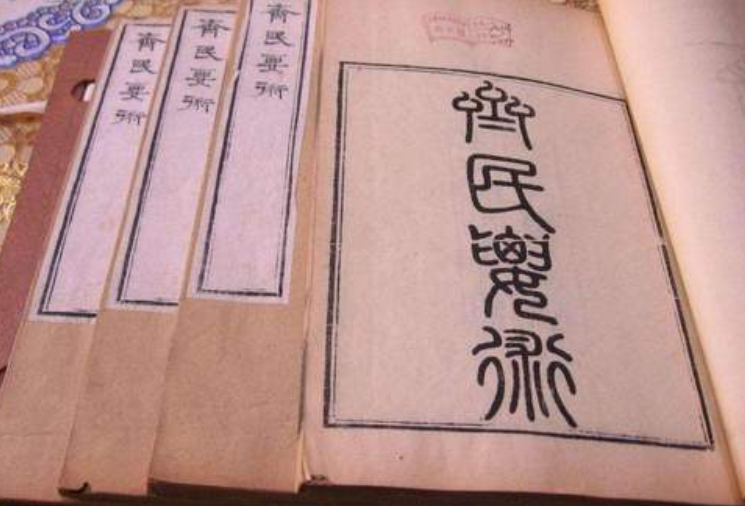 齊民要術
齊民要術
齊民要術
齊民要術